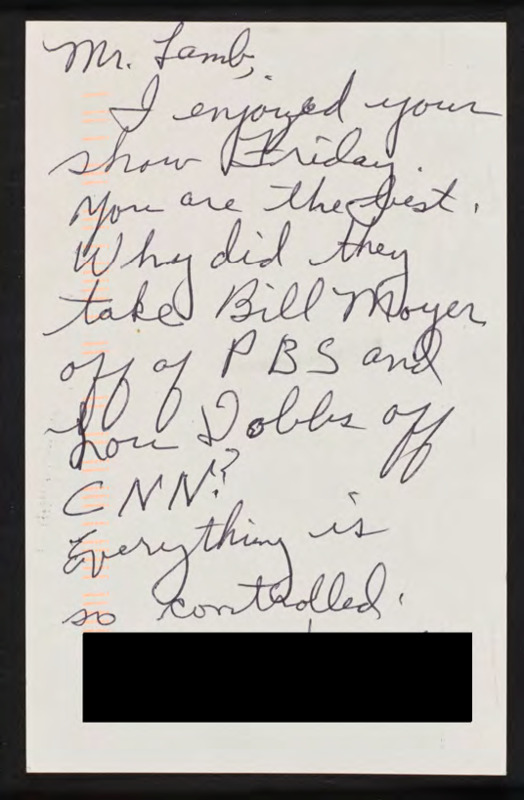 Mr. Lamb,
I enjoyed your
show Friday.
You are the best.
Why did they
take Bill Moyer
off of PBS and
Lou Dobbs off
CNN?
Everything is
so controlled.